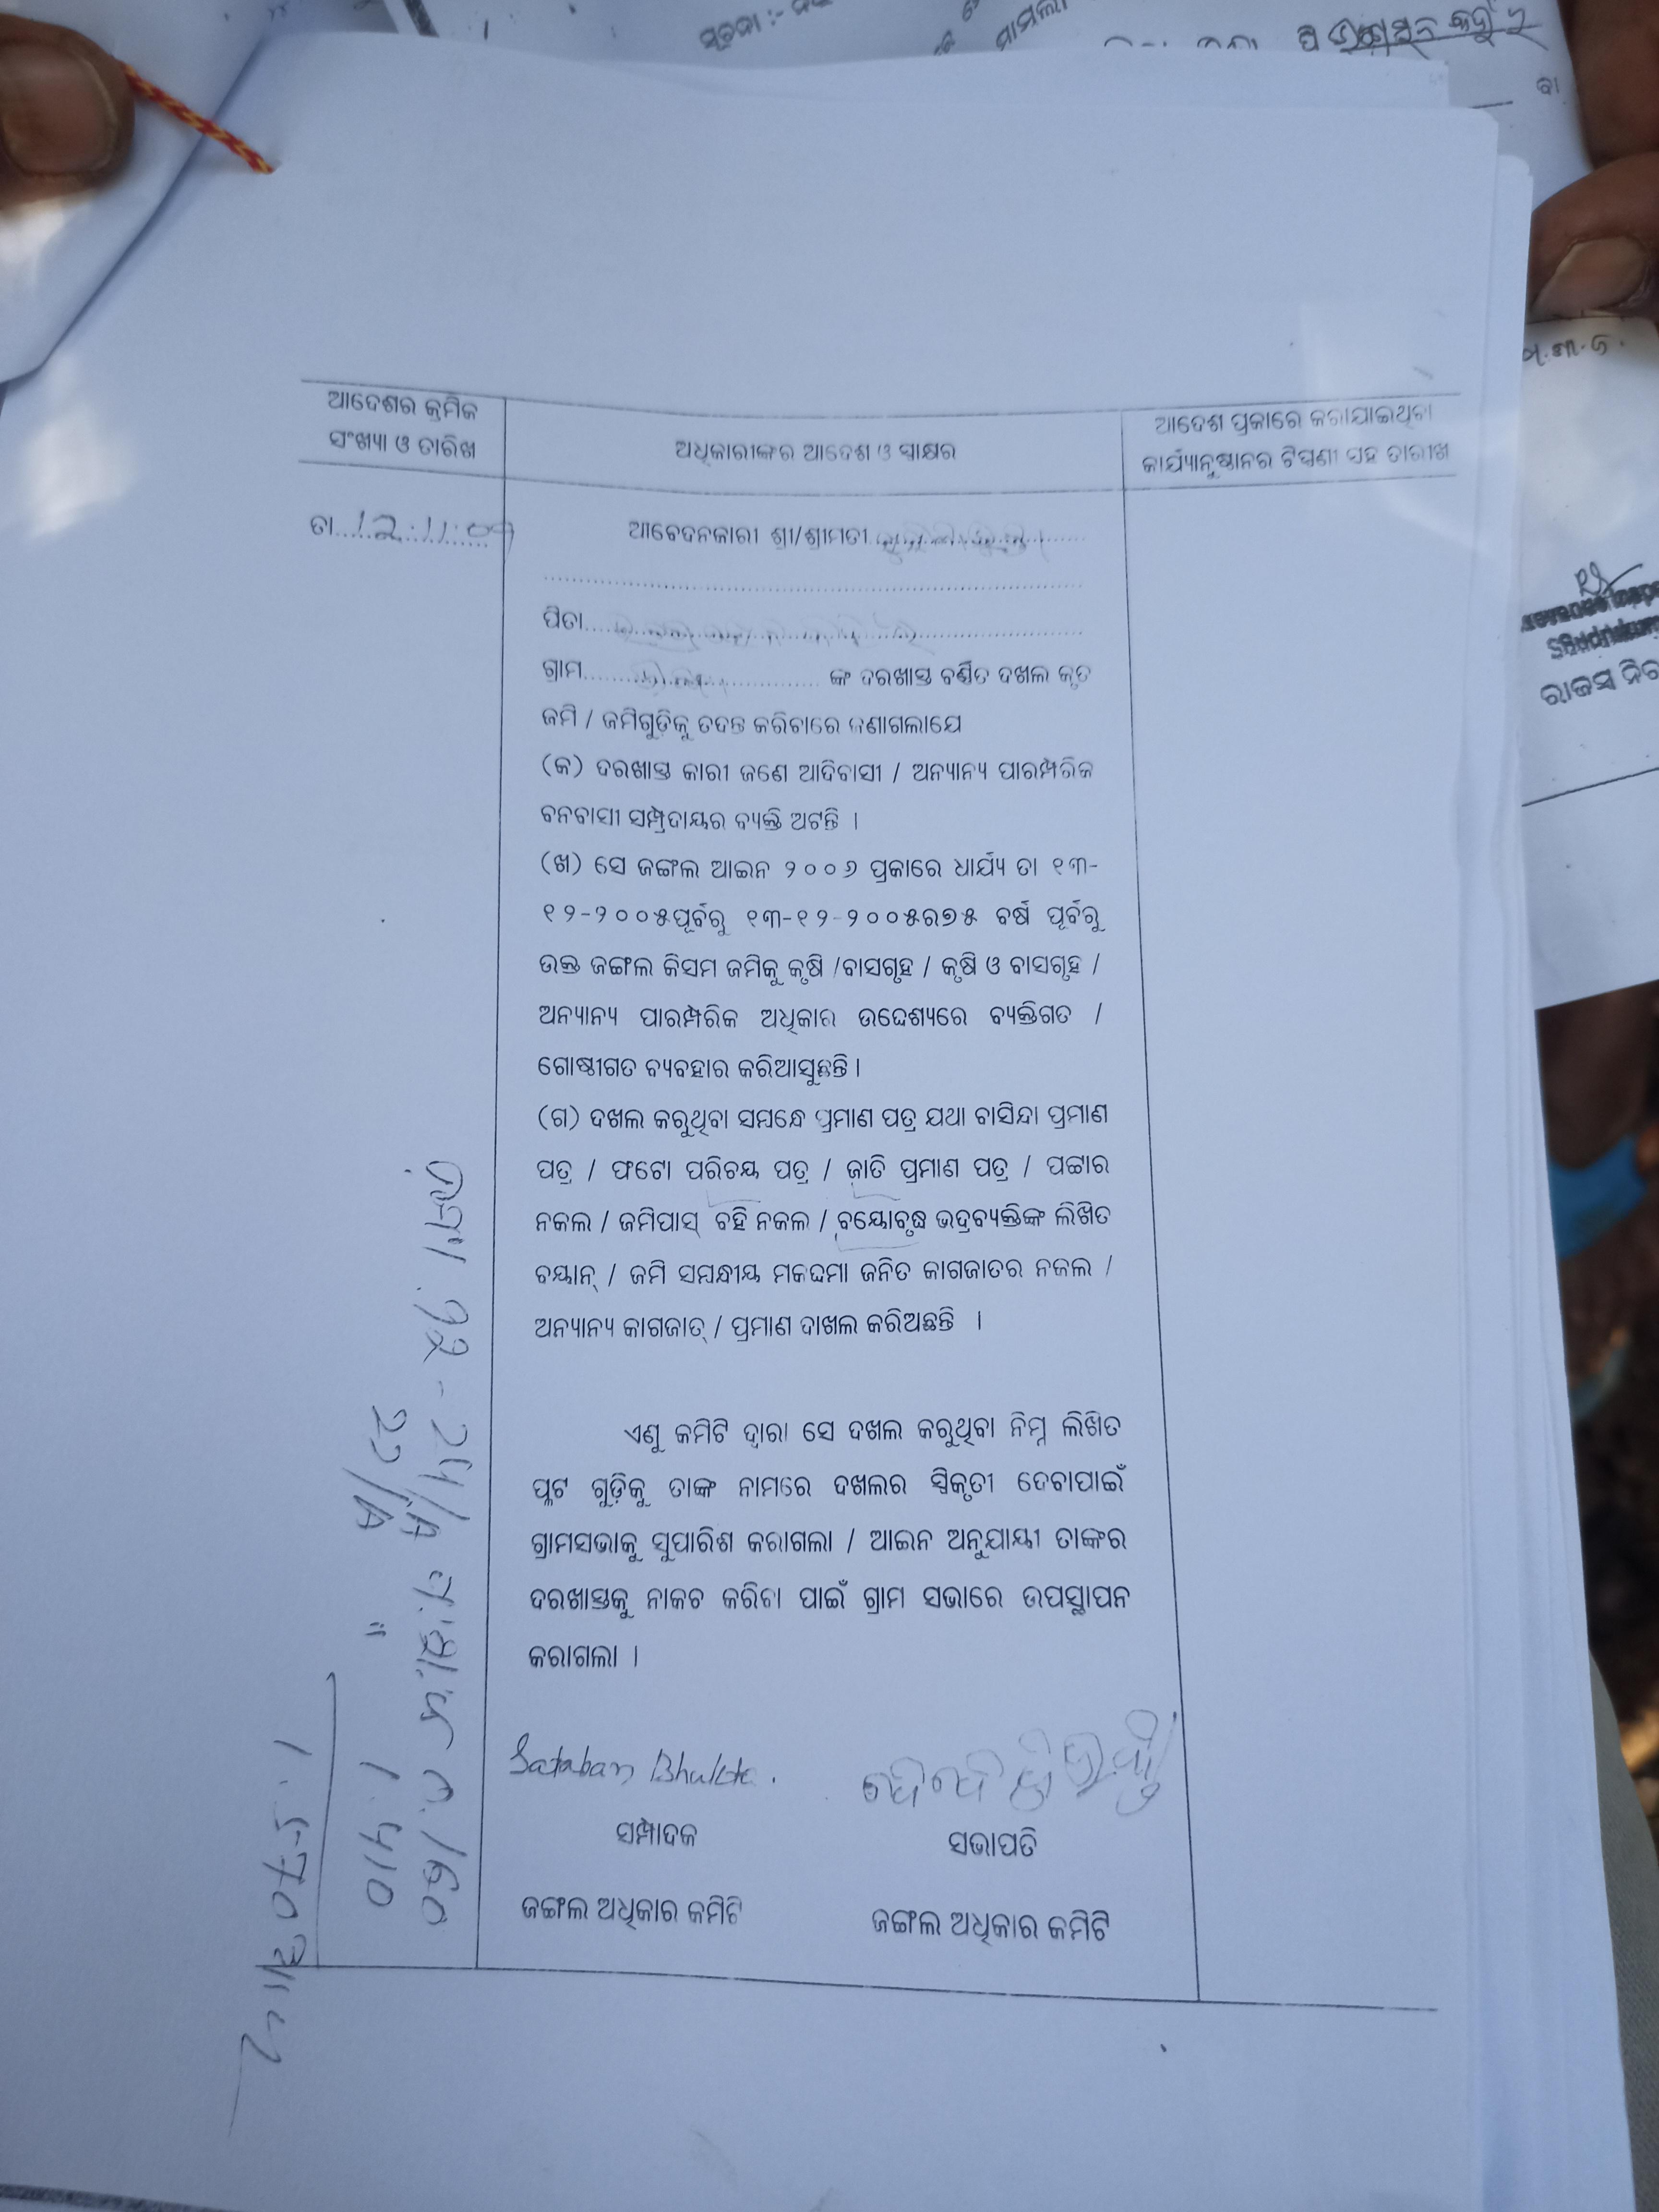 ଆଦେଶର କ୍ରମିକ
ସଂଖ୍ୟା ଓ ତାରିଖ
ଅଧିକାରୀଙ୍କର ଆଦେଶ ଓ ସ୍ୱାକ୍ଷର
ଆଦେଶ ପ୍ରକାରେ କରାଯାଇଥିବା
କାର୍ଯ୍ୟାନୁଷ୍ଠାନର ଟିପ୍ପଣୀ ସହ ତାରୀଖ
ତା....12.11.09
ଆବେଦନକାରୀ ଶ୍ରୀ/ଶ୍ରୀମତୀ
ପିତା
ଗ୍ରାମ ଙ୍କ ଦରଖାସ୍ତ ବର୍ଣ୍ଣିତ ଦଖଲ କୃତ
ଜମି / ଜମିଗୁଡ଼ିକୁ ତଦନ୍ତ କରିବାରେ ଜଣାଗଲାଯେ
(କ) ଦରଖାସ୍ତ କାରୀ ଜଣେ ଆଦିବାସୀ / ଅନ୍ୟାନ୍ୟ ପାରମ୍ପରିକ
ବନବାସୀ ସମ୍ପ୍ରଦାୟର ବ୍ୟକ୍ତି ଅଟନ୍ତି ।
(ଖ) ସେ ଜଙ୍ଗଲ ଆଇନ ୨୦୦୬ ପ୍ରକାରେ ଧାର୍ଯ୍ୟ ତା ୧୩-
୧୨-୨୦୦୫ପୂର୍ବରୁ ୧୩-୧୨-୨୦୦୫ର୭୫ ବର୍ଷ ପୂର୍ବରୁ
ଉକ୍ତ ଜଙ୍ଗଲ କିସମ ଜମିକୁ କୃଷି /ବାସଗୃହ / କୃଷି ଓ ବାସଗୃହ /
ଅନ୍ୟାନ୍ୟ ପାରମ୍ପରିକ ଅଧିକାର ଉଦ୍ଦେଶ୍ୟରେ ବ୍ୟକ୍ତିଗତ /
ଗୋଷ୍ଠୀଗତ ବ୍ୟବହାର କରିଆସୁଛନ୍ତି।
(ଗ) ଦଖଲ କରୁଥିବା ସମ୍ବନ୍ଧେ ପ୍ରମାଣ ପତ୍ର ଯଥା ବାସିନ୍ଦା ପ୍ରମାଣ
ପତ୍ର / ଫଟୋ ପରିଚୟ ପତ୍ର / ଜାତି ପ୍ରମାଣ ପତ୍ର / ପଟ୍ଟାର
ନକଲ / ଜମିପାସ୍ ବହି ନକଲ / ବୟୋବୃଦ୍ଧ ଭଦ୍ରବ୍ୟକ୍ତିଙ୍କ ଲିଖିତ
ବୟାନ୍ / ଜମି ସମ୍ବନ୍ଧୀୟ ମକଦ୍ଦମା ଜନିତ କାଗଜାତର ନକଲ /
ଅନ୍ୟାନ୍ୟ କାଗଜାତ୍ / ପ୍ରମାଣ ଦାଖଲ କରିଅଛନ୍ତି ।
ଏଣୁ କମିଟି ଦ୍ୱାରା ସେ ଦଖଲ କରୁଥିବା ନିମ୍ନ ଲିଖିତ
ପ୍ଲଟ ଗୁଡ଼ିକୁ ତାଙ୍କ ନାମରେ ଦଖଲର ସ୍ୱିକୃତୀ ଦେବାପାଇଁ
ଗ୍ରାମସଭାକୁ ସୁପାରିଶ କରାଗଲା / ଆଇନ ଅନୁଯାୟୀ ତାଙ୍କର
ଦରଖାସ୍ତକୁ ନାକଚ କରିବା ପାଇଁ ଗ୍ରାମ ସଭାରେ ଉପସ୍ଥାପନ
କରାଗଲା ।
Sataban Bhukta.
ସମ୍ପାଦକ
ସଭାପତି
ଜଙ୍ଗଲ ଅଧିକାର କମିଟି
ଜଙ୍ଗଲ ଅଧିକାର କମିଟି
27/A " 1.410
1.570
ରାଜସ୍ୱ